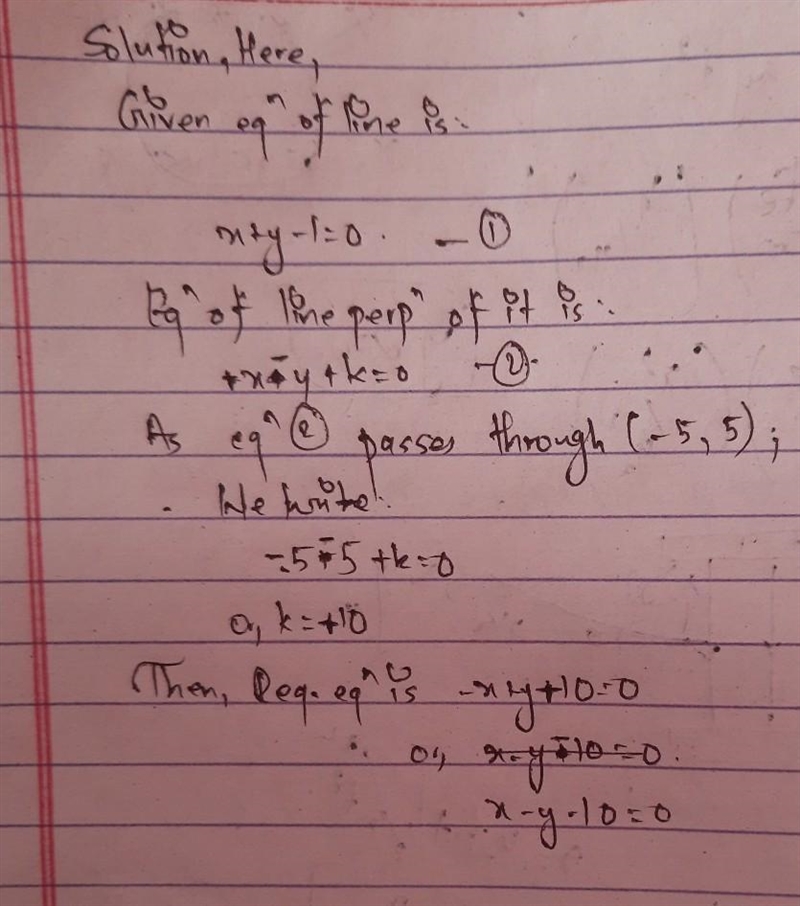 Solution, Here,
Given eqⁿ of line is:
x+y-1=0. — ①
Eqⁿ of line perpⁿ of it is:
x-y+k=0 -②-
As eqⁿ ② passes through (-5, 5);
We write!
-5-5+k=0
or, k=+10
Then, Req. eqⁿ is -x+y+10=0
or, x-y-10=0.
x-y-10=0